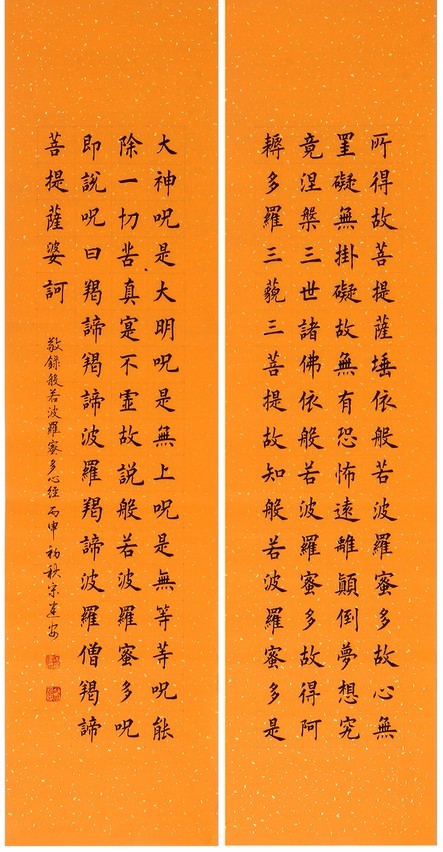 所得故菩提薩埵依般若波羅蜜多故心無
罣礙無掛礙故無有恐怖遠離顛倒夢想究
竟涅槃三世諸佛依般若波羅蜜多故得阿
耨多羅三藐三菩提故知般若波羅蜜多是
大神呪是大明呪是無上呪是無等等呪能
除一切苦真寔不虛故說般若波羅蜜多呪
即說呪曰羯諦羯諦波羅羯諦波羅僧羯諦
菩提薩婆訶
敬錄般若波羅蜜多心經 丙申初秋